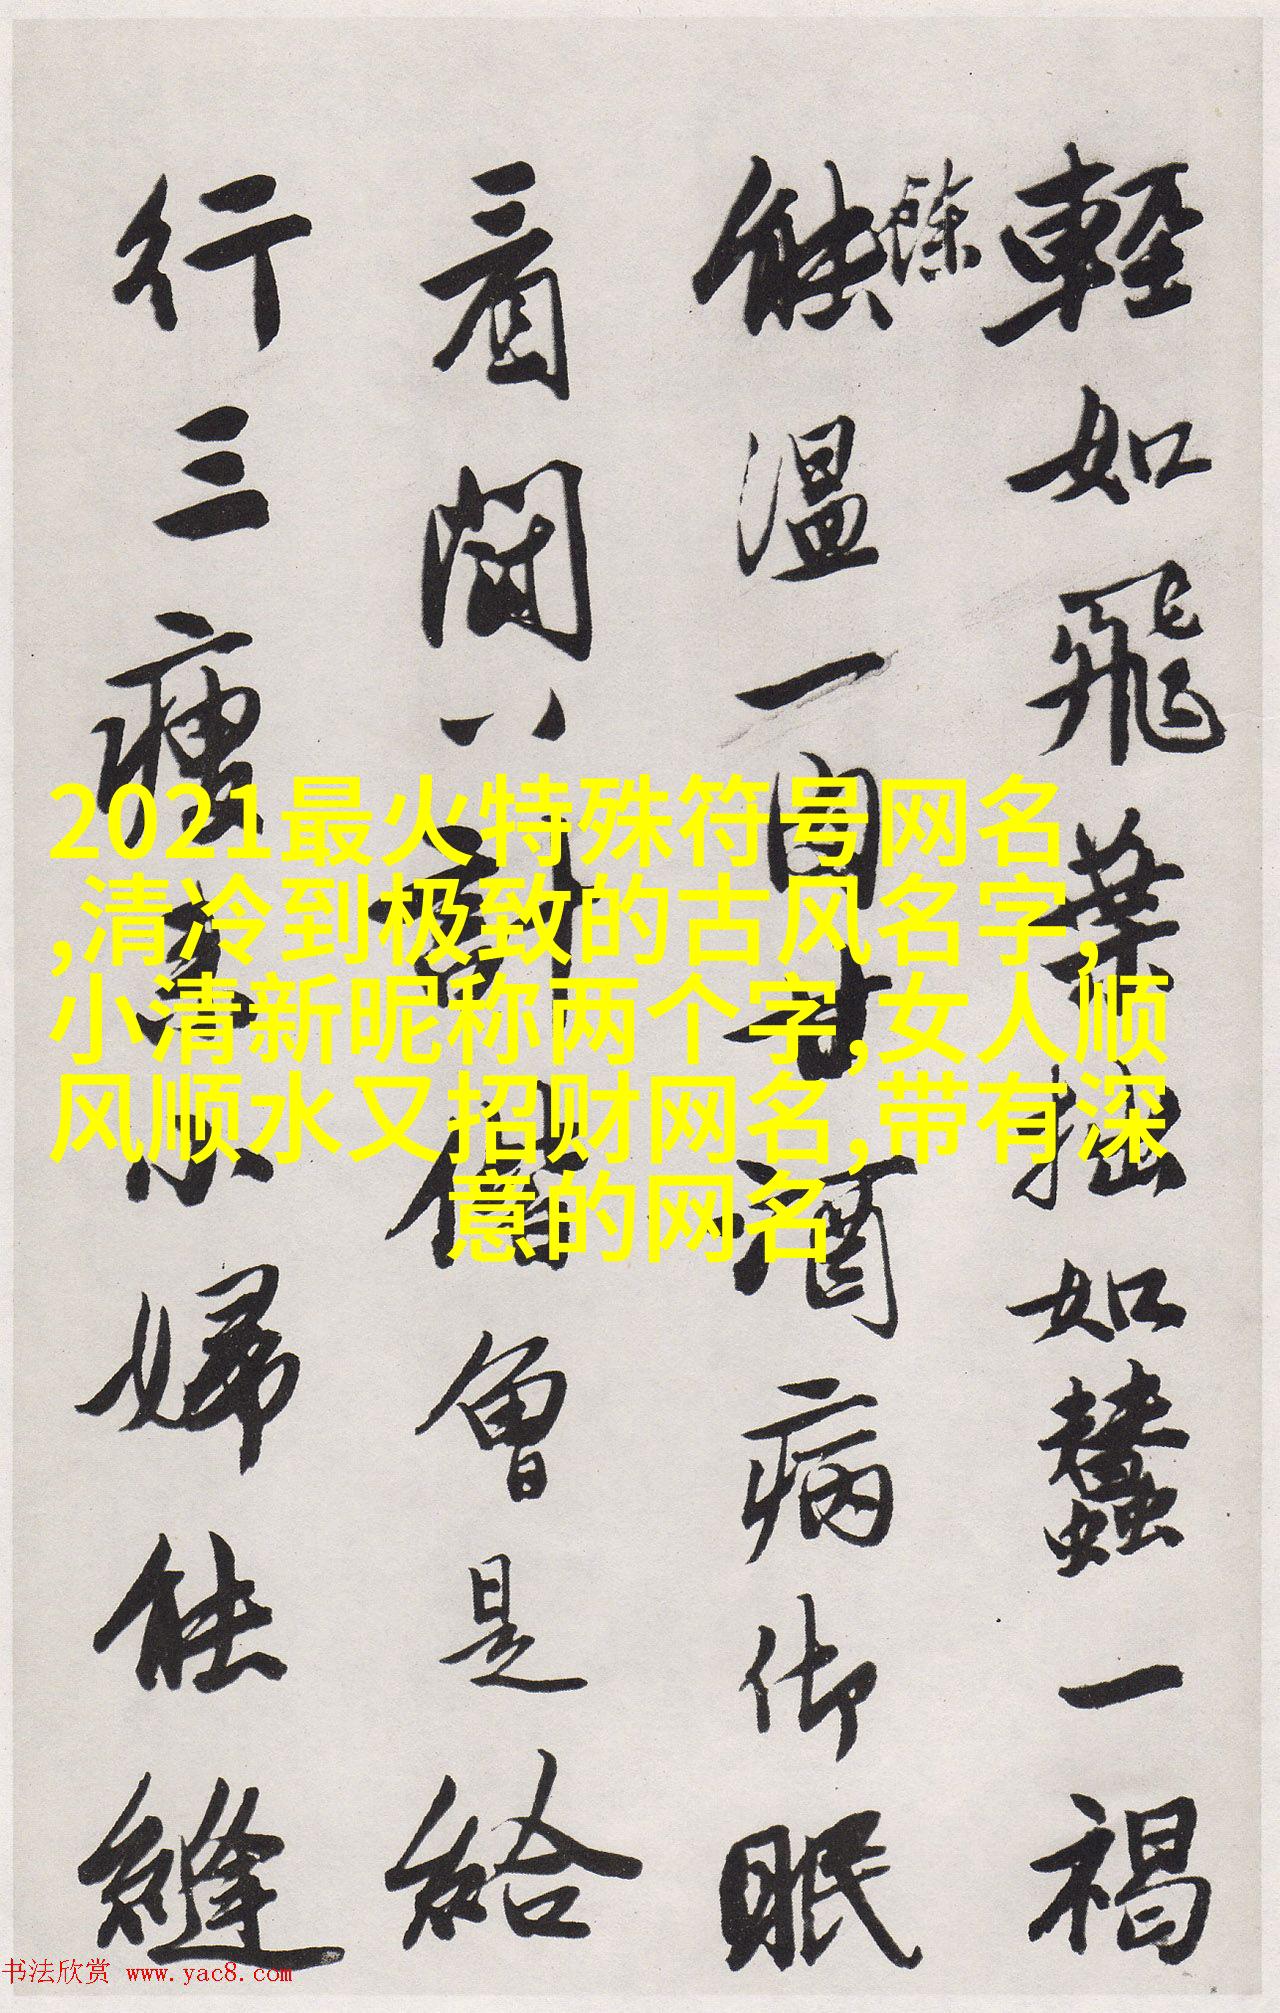 輕如飛葉拙如蠶一褐
餘
能温一甘酒病御眠
看八曾是給
行三小婦能縫
2021最火特殊符号网名
,清冷到极致的古风名字,
小清新昵称两个字,女人顺
风顺水又招财网名,带有深
意的网名
书法欣赏 www.yac8.com